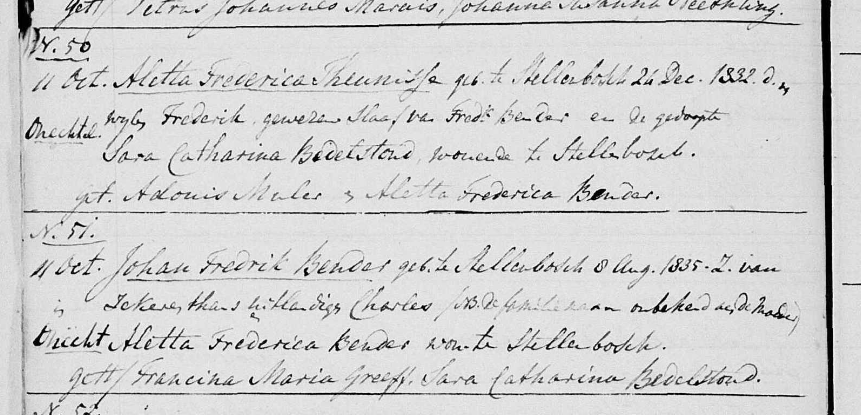 gett/ Petrus Johannes Marais, Johanna Susanna
N. 50
11 Oct. Aletta Frederica Theunisse geb. te Stellenbosch 24 Dec. 1832. d. v
Onechtel. wyle Frederik, gewezen Slaaf van Fredk Bender en de gedoopte
Sara Catharina Bedelstond, wonende te Stellenbosch.
get. Adonis Muler & Aletta Frederica Bender.
N. 51.
11 Oct. Johan Fredrik Bender geb. te Stellenbosch 8 Aug. 1835. Z. van
Zekere, thans uitlandige Charles (NB. De familienaam onbekend aan de Moeder)
Onecht Aletta Frederica Bender won. te Stellenbosch.
gett/ Francina Maria Greeff. Sara Catharina Bedelstond.